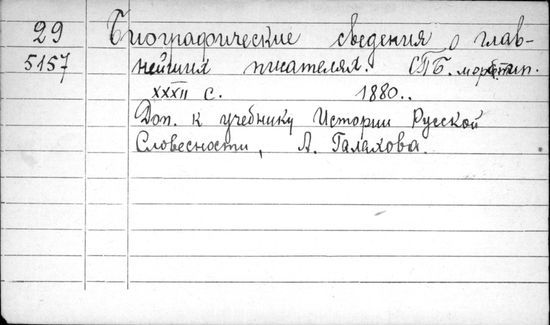 29 Биографические сведения о глав-
5157 нейших писателях. СПБ. тип.
XXXII с. 1880..
Доп. к учебнику Истории Русской
Словесности, А. Галахова.